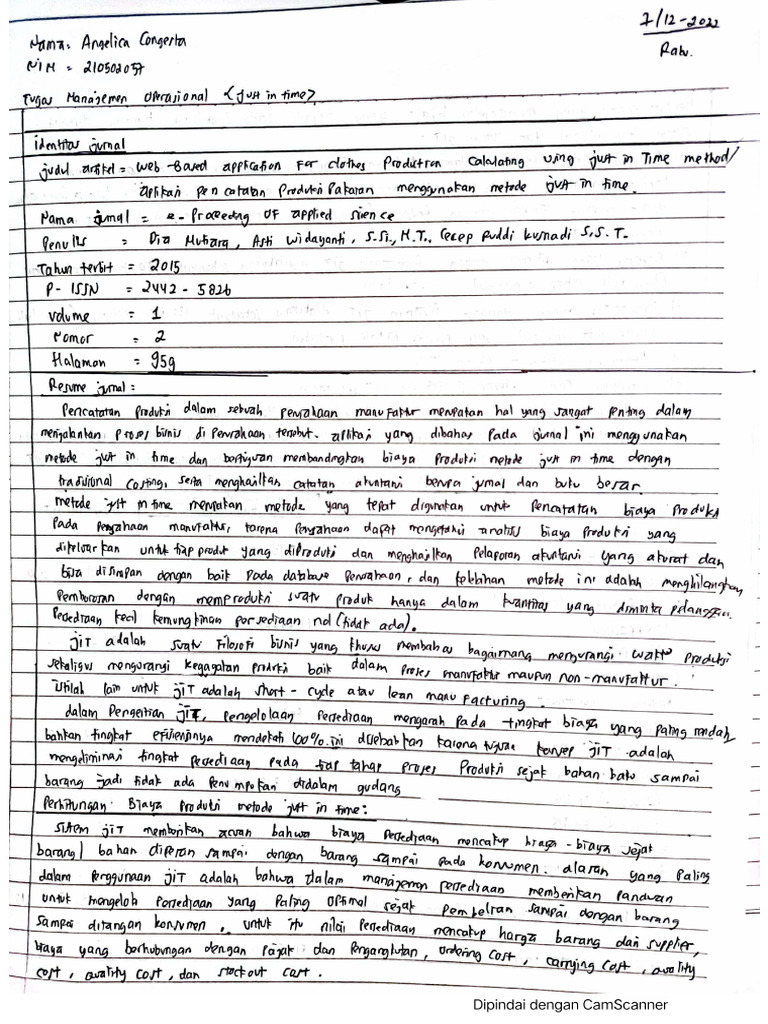 7/12-2022
Rabu.
Nama: Angelica Congerta
NIM = 210502057
Tugas Manajemen Operasional (just in time)
identitas jurnal
judul artikel = web-Based application For clothes Production Calculating using just in Time method/
aplikasi pencatatan Produksi Pakaian menggunakan metode just in time.
Nama jurnal = e-Proceeding OF applied science
Penulis = Dia Mutiara, Asti Widayanti, S.Si., M.T., Cecep Ruddi Kusnadi S.S.T.
Tahun terbit = 2015
P-ISSN = 2442-5826
volume = 1
Nomor = 2
Halaman = 959
Resume jurnal:
Pencatatan Produksi dalam sebuah perusahaan manufaktur merupakan hal yang sangat penting dalam
menjalankan Proses bisnis di Perusahaan tersebut. aplikasi yang dibahas Pada jurnal ini menggunakan
metode just in time dan bertujuan membandingkan biaya Produksi metode just in time dengan
tradisional costing, serta menghasilkan catatan akuntansi berupa jurnal dan buku besar.
metode just in time merupakan metode yang tepat digunakan untuk Pencatatan biaya Produksi
Pada Perusahaan manufaktur, karena Perusahaan dapat mengetahui analisis biaya Produksi yang
dikeluarkan untuk tiap produk yang diproduksi dan menghasilkan Pelaporan akuntansi yang akurat dan
bisa disimpan dengan baik Pada database Perusahaan, dan kelebihan metode ini adalah menghilangkan
Pemborosan dengan memproduksi suatu Produk hanya dalam kuantitas yang diminta pelanggan.
Persediaan kecil kemungkinan persediaan nol (tidak ada).
JIT adalah suatu Filosofi bisnis yang khusus membahas bagaimana mengurangi waktu Produksi
sekaligus mengurangi kegagalan produksi baik dalam Proses manufaktur maupun non-manufaktur.
istilah lain untuk JIT adalah short-cycle atau lean manufacturing.
dalam Pengertian JIT, pengelolaan Persediaan mengarah Pada tingkat biaya yang paling rendah
bahkan tingkat efisiensinya mendekati 100%. ini disebabkan karena tujuan konsep JIT adalah
mengeliminasi tingkat persediaan pada tiap tahap proses Produksi sejak bahan baku sampai
barang jadi tidak ada Penumpukan didalam gudang
Perhitungan Biaya Produksi metode just in time:
Sistem JIT memberikan acuan bahwa biaya Persediaan mencakup biaya-biaya sejak
barang/bahan dipesan sampai dengan barang sampai pada konsumen. alasan yang Paling
dalam Penggunaan JIT adalah bahwa dalam manajemen persediaan memberikan Panduan
untuk mengolah Persediaan yang Paling optimal sejak Pembelian sampai dengan barang
sampai ditangan konsumen, untuk itu nilai Persediaan mencakup harga barang dari supplier,
biaya yang berhubungan dengan Pajak dan Pengangkutan, ordering cost, carrying cost, quality
cost, quality cost, dan stockout cost.
Dipindai dengan CamScanner